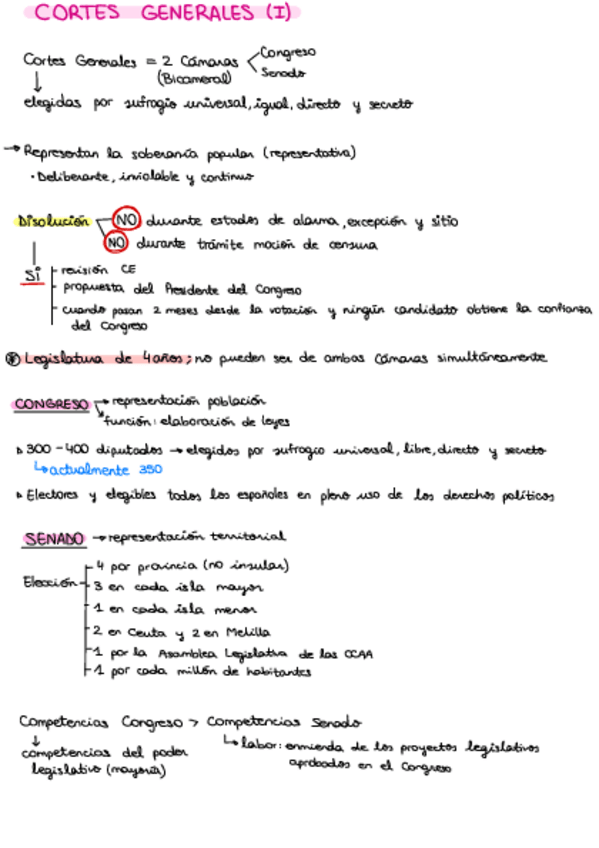 CORTES GENERALES (I)
Cortes Generales = 2 Cámaras
Congreso
Senado
(Bicameral)
elegidas por sufragio universal, igual, directo y secreto
→ Representan la soberanía popular (representativa)
• Deliberante, inviolable y continuo
Disolución
NO durante estados de alarma, excepción y sitio
NO durante trámite moción de censura
Sí
revisión CE
propuesta del Presidente del Congreso
cuando pasan 2 meses desde la votación y ningún candidato obtiene la confianza
del Congreso
Legislatura de 4 años; no pueden ser de ambas Cámaras simultáneamente
CONGRESO → representación población
función: elaboración de leyes
300 - 400 diputados → elegidos por sufragio universal, libre, directo y secreto
↳ actualmente 350
Electores y elegibles todos los españoles en pleno uso de los derechos políticos
SENADO → representación territorial
Elección
4 por provincia (no insular)
3 en cada isla mayor
1 en cada isla menor
2 en Ceuta y 2 en Melilla
1 por la Asamblea Legislativa de las CCAA
1 por cada millón de habitantes
Competencias Congreso > Competencias Senado
competencias del poder
legislativo (mayoría)
↳ labor: enmienda de los proyectos legislativos
aprobados en el Congreso